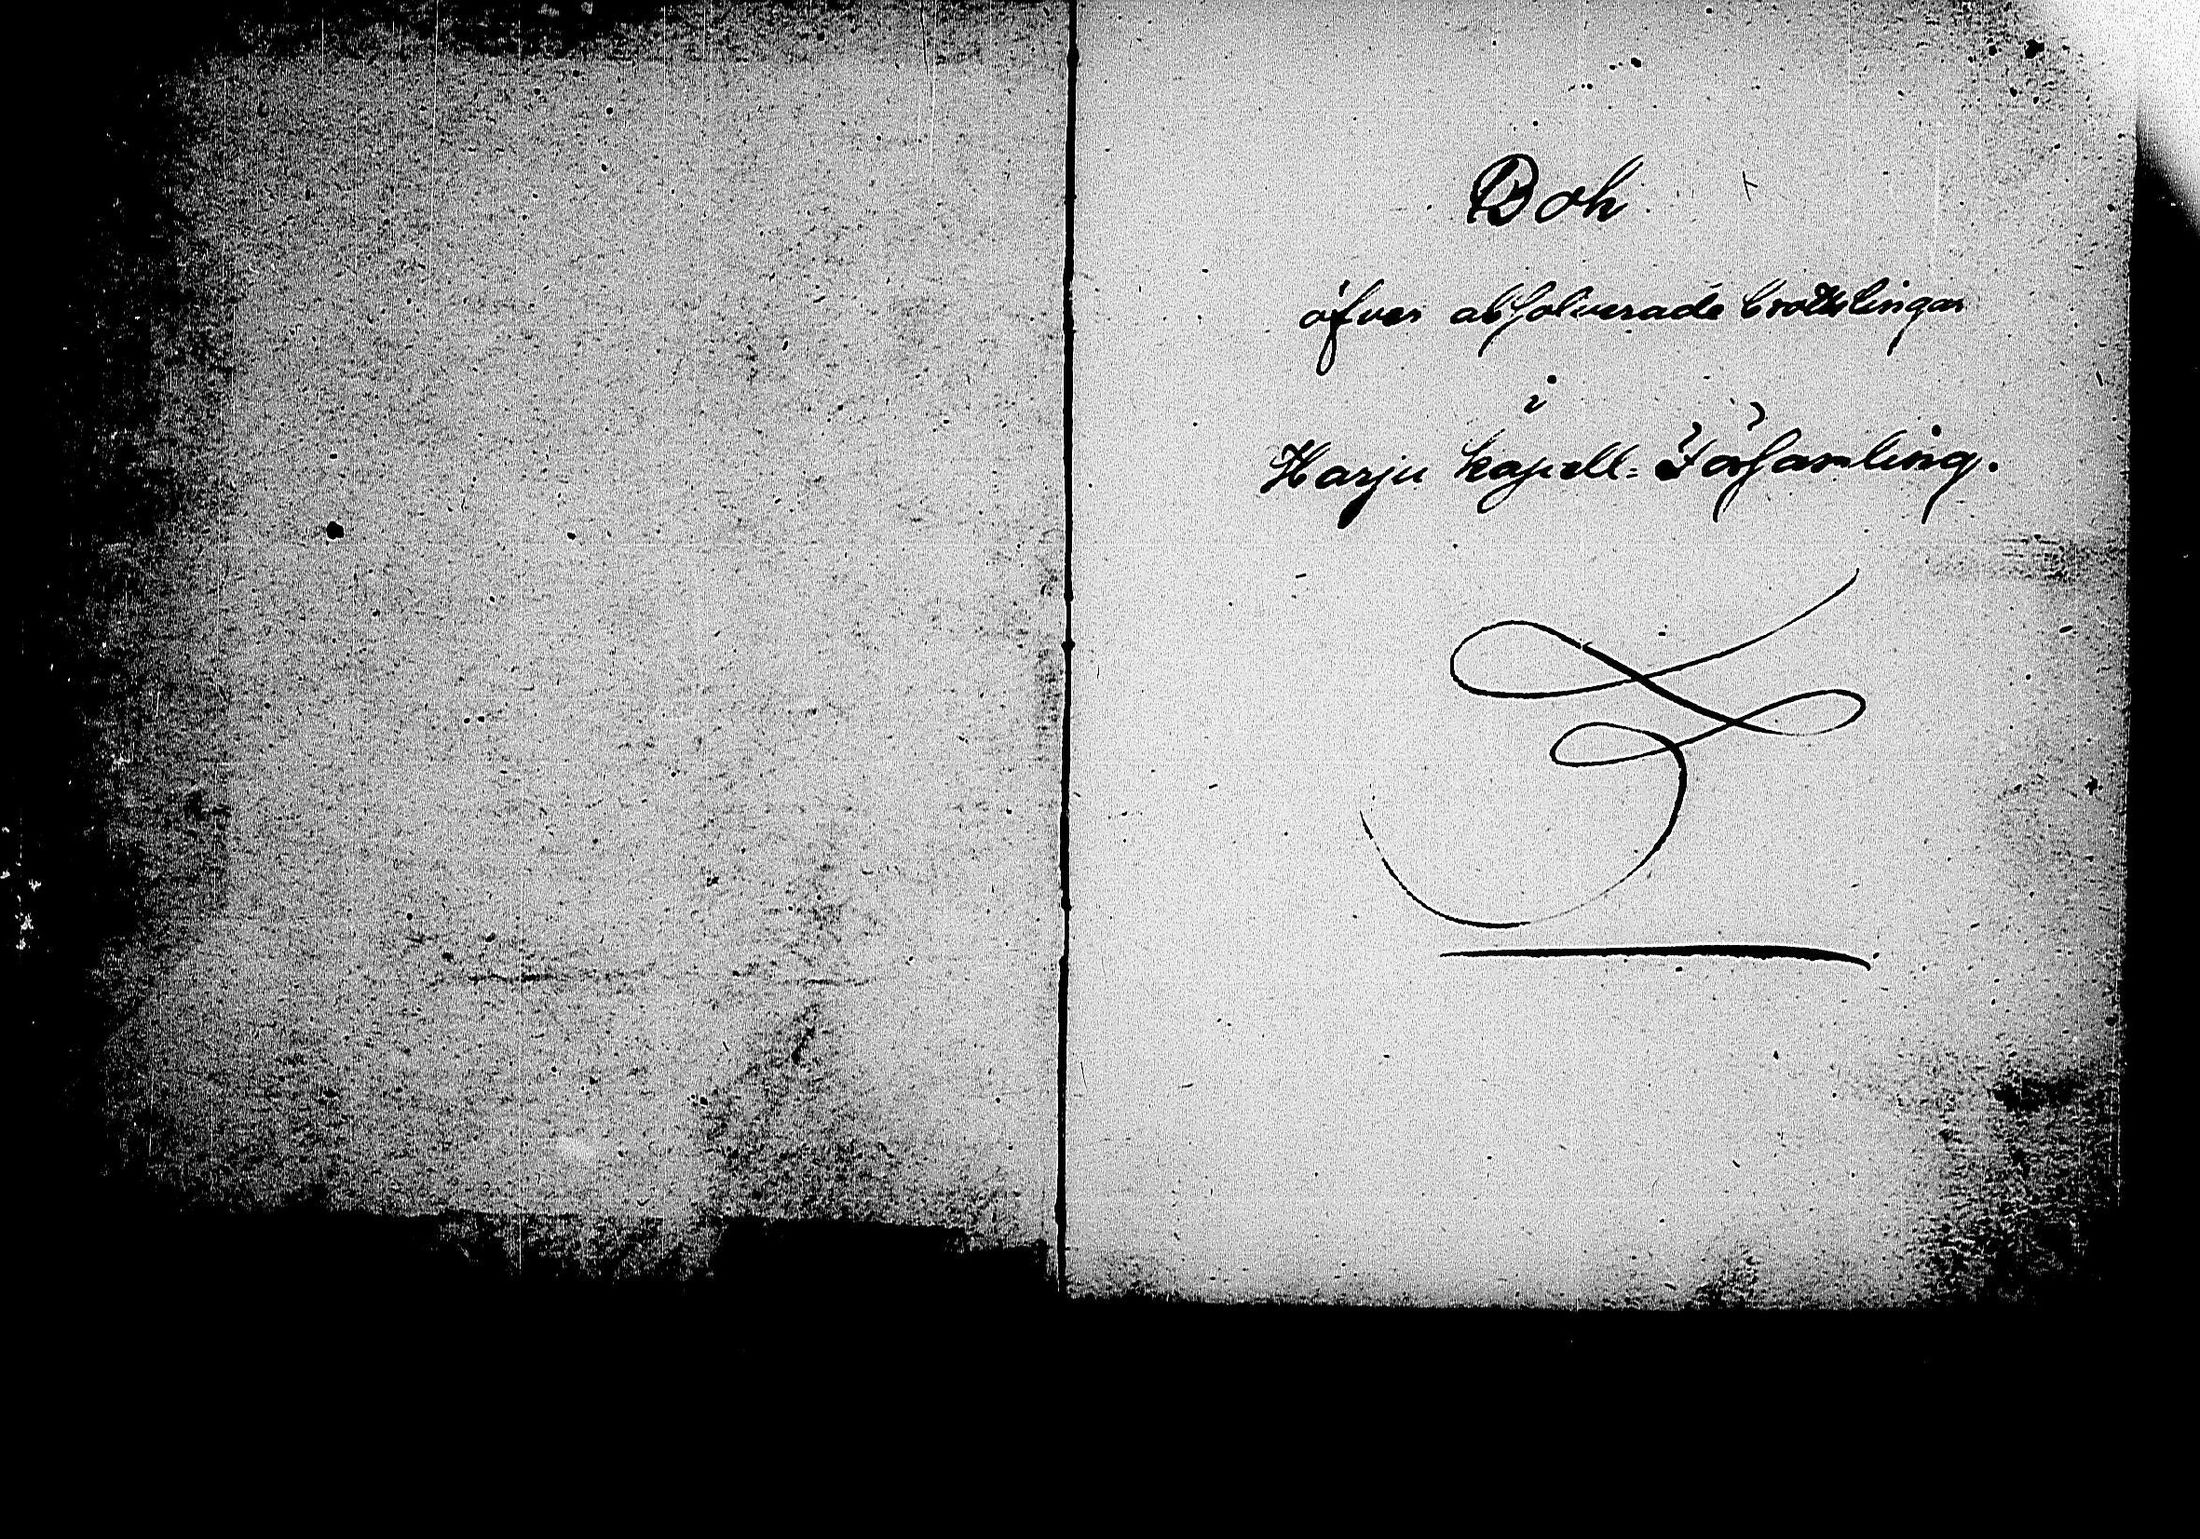 Bok
öfver absolverade brottslingar
i
Karju kapell-Församling.